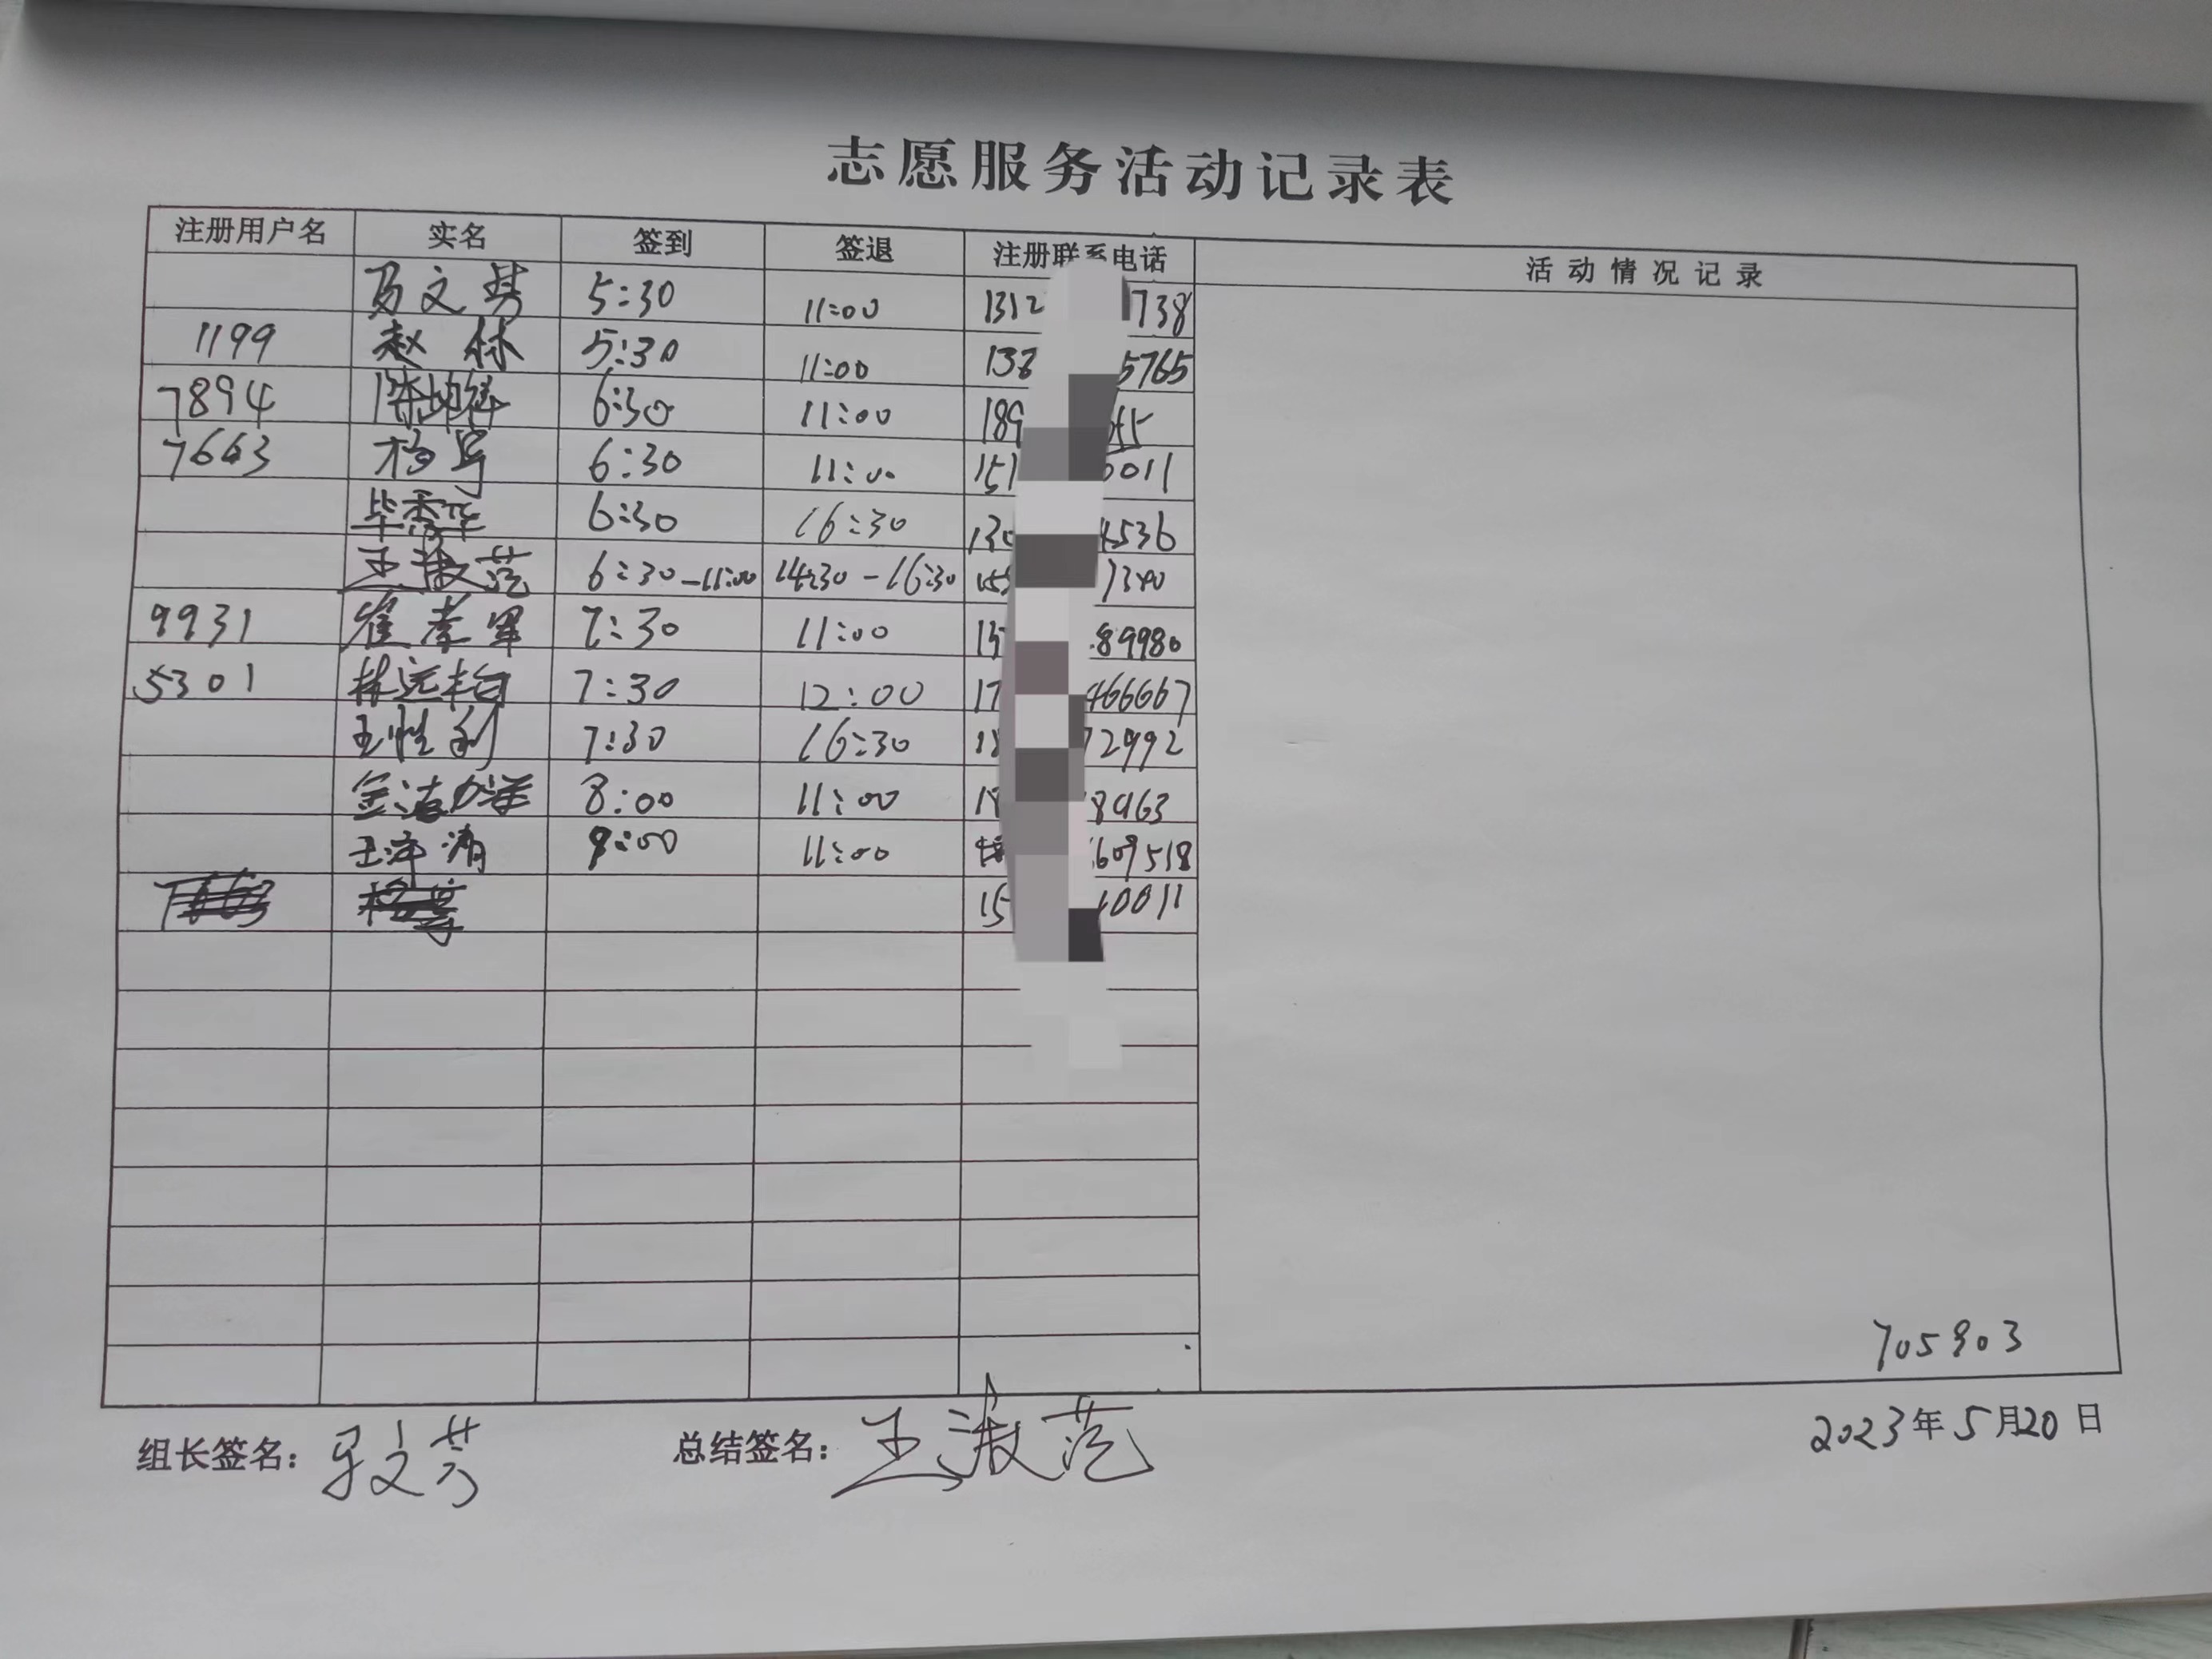 志愿服务活动记录表
注册用户名 实名 签到 签退 注册联系电话 活动情况记录
5:30 11:00 1312 1738
1199 赵林 5:30 11:00 138 5765
7894 6:30 11:00 189
7663 杨 6:30 11:00 151 6011
毕秀华 6:30 16:30 130 4536
王淑范 6:30-11:00 14:30-16:30 155
9931 崔孝軍 7:30 11:00 15 89980
5301 林远 7:30 12:00 17 466667
王性利 7:30 16:30 18 72992
金 8:00 11:00 18
王 9:00 11:00 609518
15 10011
705903
组长签名： 总结签名：王淑范 2023年5月20日